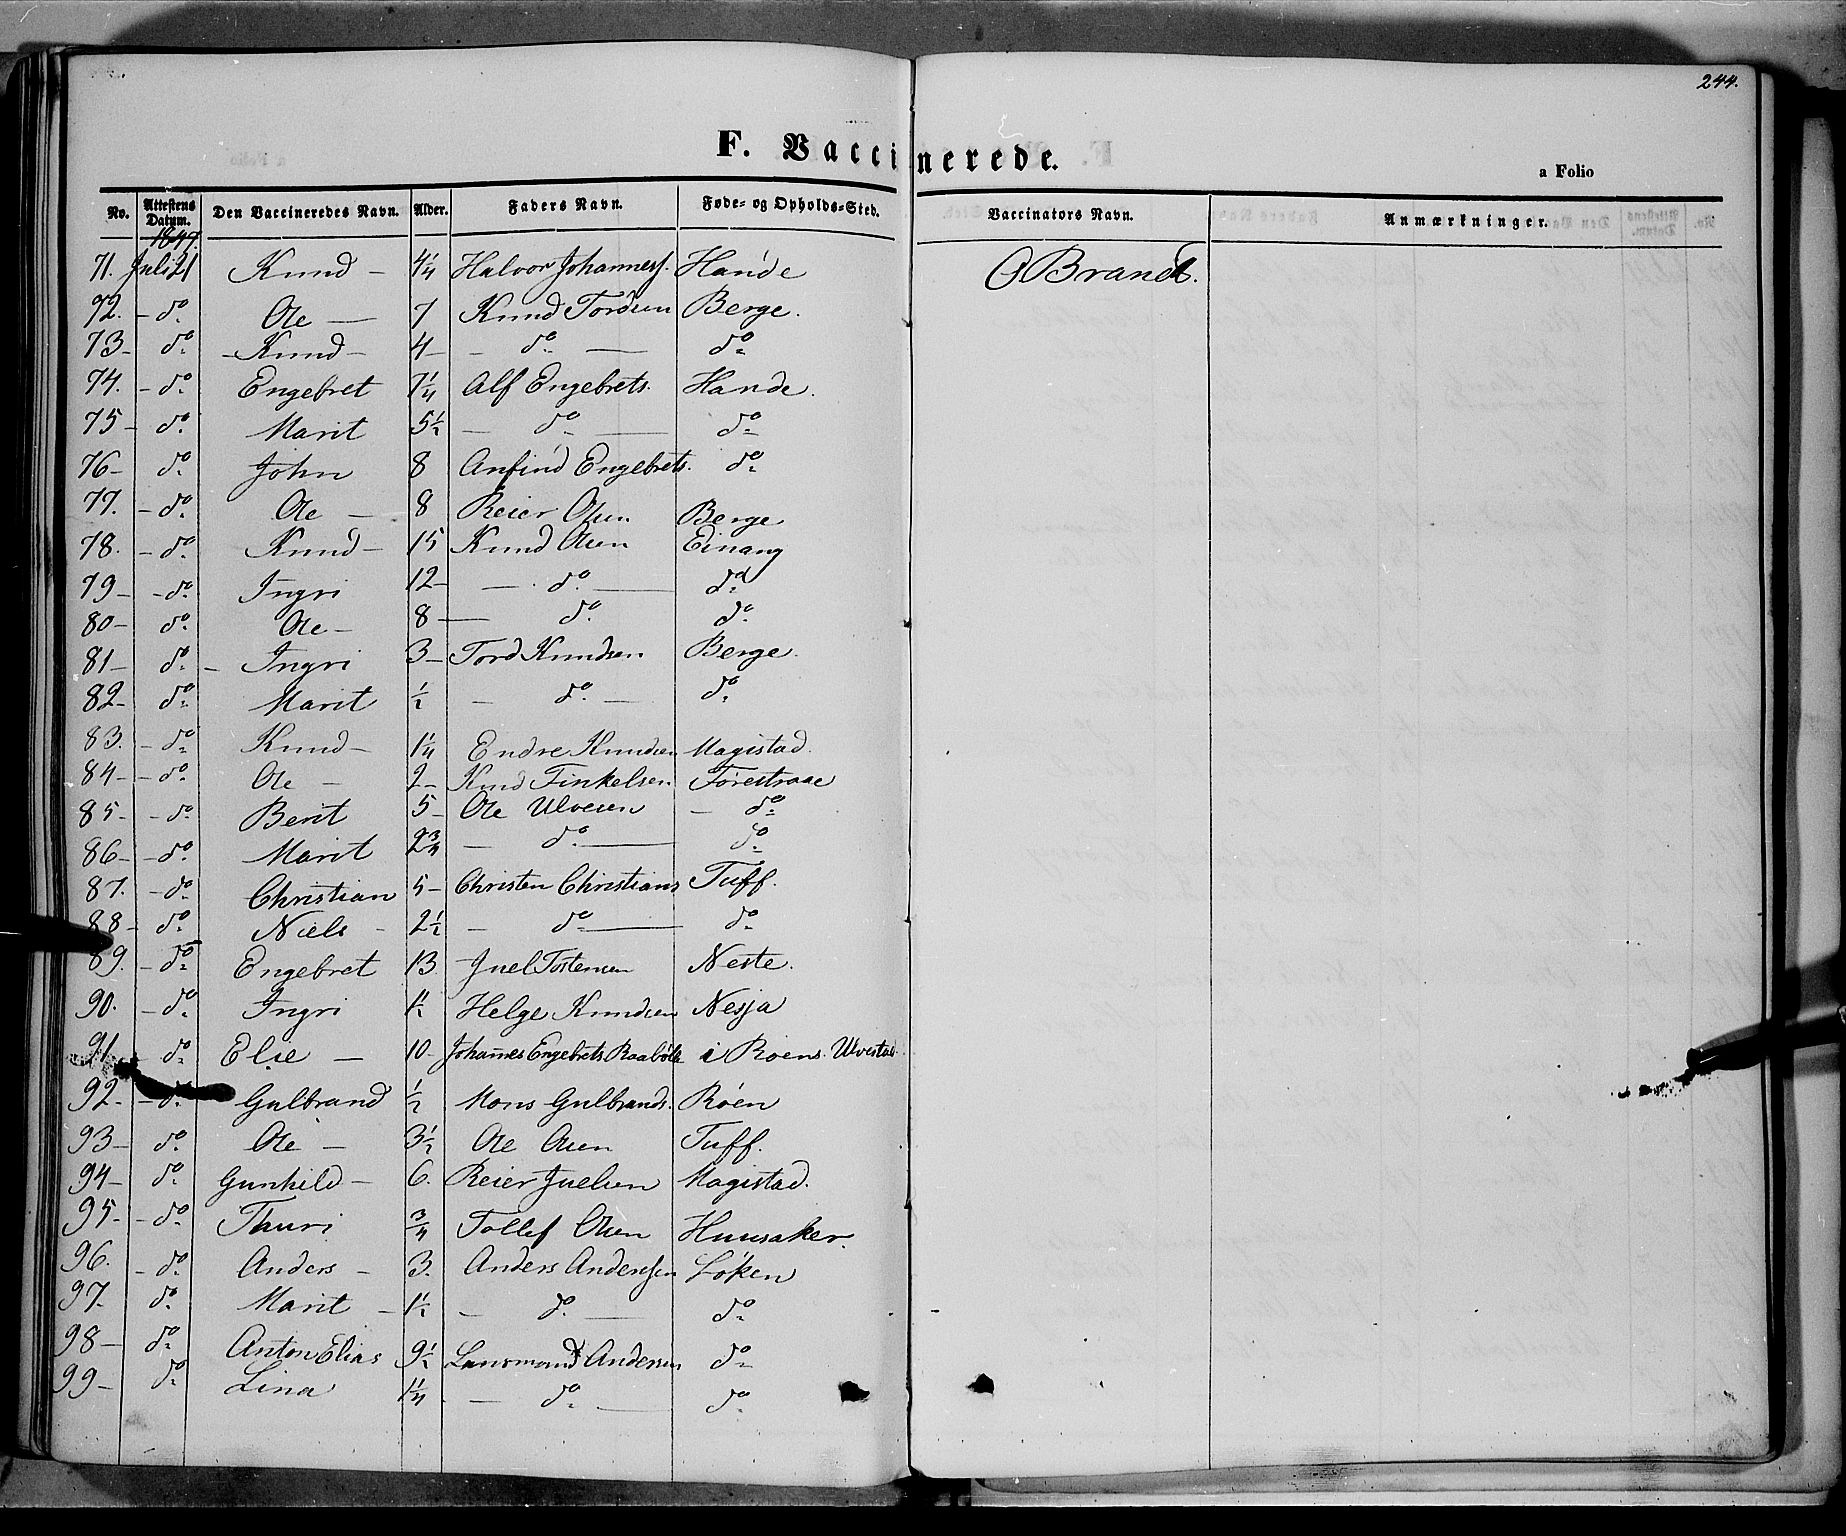 244.
F. Vaccinerede.
a Folio
No. Attestens Datum. Den Vaccineredes Navn. Alder. Faders Navn. Føde- og Opholds-Sted. Vaccinators Navn. Anmærkninger.
1847.
71. Juli 21 Knud - 4 1/4 Halvor Johannesf. Hande O Brandt.
72. - do Ole - 7 Knud Tordsen Berge.
73 - do - Knud - 4 - do - do
74. - do Engebret 7 1/4 Alf Engebrets. Hande.
75 - do Marit 5 1/2 - do - do
76 - do John 8 Anfind Engebrets. do
77. - do Ole - 8 Reier Olsen Berge
78. - do Knud - 15 Knud Olsen Einang
79 - do Ingri 12 - do - do
80 - do Ole - 8 - do do
81 - do - Ingri 3 - Tord Knudsen Berge.
82 - do Marit 1/2 - do - do
83. - do Knud - 1 1/4 Endre Knudsen Magistad.
84 - do Ole - 2 - Knud Finkelsen Førestraae
85 - do Berit 5 - Ole Ulvesen - do
86 - do Marit 2 3/4 - do - do
87. - do Christian 5 - Christen Christians Tuff.
88 - do Niels - 2 1/2 - do - do
89. - do Engebret 13 Juel Tostensen Neste.
90. - do Ingri 1 1/2 Helge Knudsen Nesja
91 do Elie - 10 - Johannes Engebrets Raabøle i Roens Ulvestad.
92 - do Gulbrand 1/2 Mons Gulbrands. Røen
93 - do Ole - 3 1/2 Ole Olsen Tuff.
94 - do Gunhild - 6. Reier Juelsen Magistad.
95 - do Thuri 3/4 Tollef Olsen Huusaker.
96. - do Anders - 3. Anders Andersen Løken
97. do Marit - 1 1/2 - do - do
98 - do Anton Elias 9 1/2 Lensmand Andersen do
99 - do Lina 1 1/4 - do - do